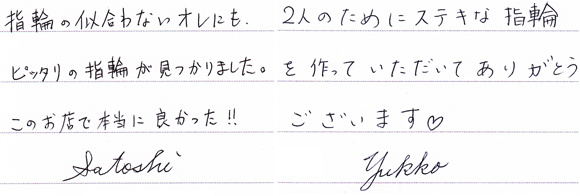 指輪の似合わないオレにも.
ピッタリの指輪が見つかりました。
このお店で本当に良かった!!
Satoshi
2人のためにステキな指輪
を作っていただいてありがとう
ございます♡
Yukko